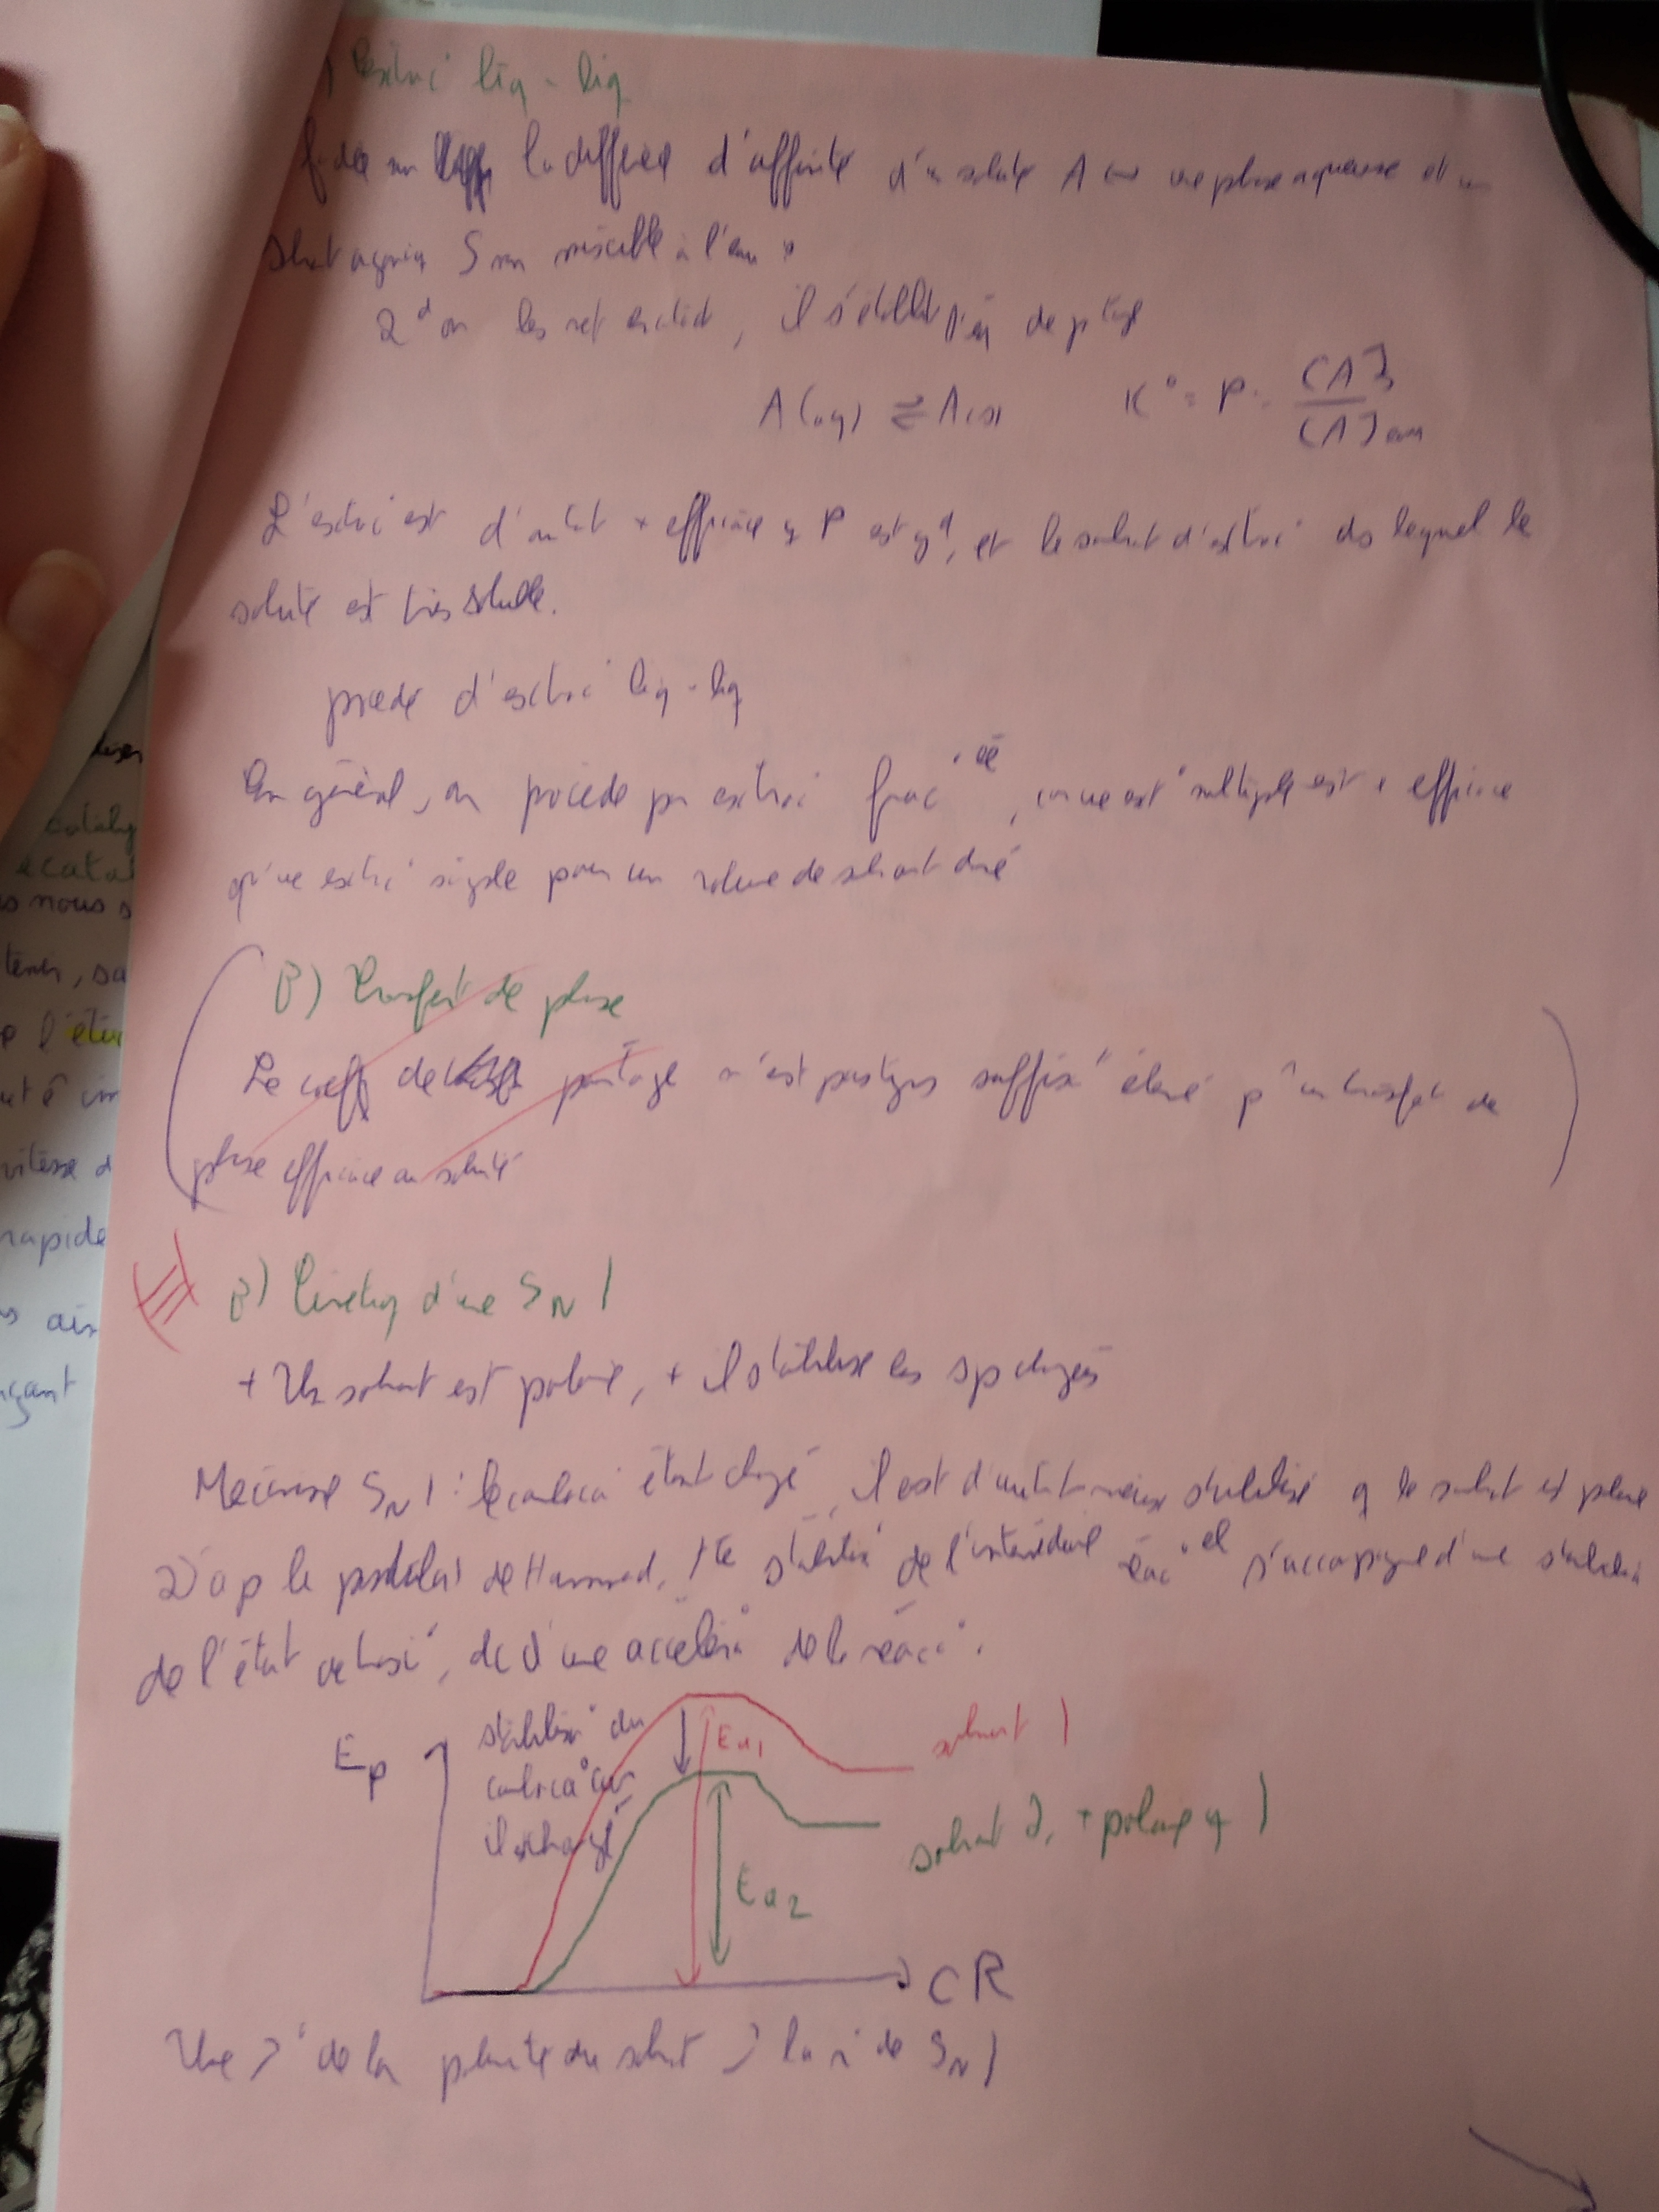 ) extrac° liq - liq
fondée sur la différence d'affinité d'un soluté A entre une phase aqueuse et un
solvant S non miscible à l'eau
on les met, il s'établit l'éq de ptage
A(aq) ⇌ A(s) K° = P = [A]s / [A]eau
L'extrac° est d'autant + efficace q P est gd, et le solvant d'extrac° ds lequel le
soluté est très soluble.
procédé d'extrac° liq - liq
En général, on procède par extrac° frac°ée, car une ext° multiple est + efficace
qu'une extrac° simple pour un volume de solvant donné
B) Transfert de phase
Le coeff de partage n'est pas tjrs suffisa† élevé pr un transfert de
phase efficace du soluté
III
B) Cinétiq d'une SN1
+ Un solvant est polaire, + il stabilise les sp chargées
Mécanisme SN1 : le carboca° étant chargé, il est d'autant mieux stabilisé q le solvant est polaire
D'ap le postulat de Hammond, tte stabilisa° de l'intermédiaire réac°el s'accompagne d'une stabilisa°
de l'état de transi°, dc d'une accéléra° de la réac°.
Ep
stabilisa° du
carboca° car
il est chargé
Ea1
solvant 1
solvant 2, + polaire q 1
Ea2
CR
Une ↗ de la polarité du solvant ↗ la v de SN1
liser
cataly
ecatal
s nous s
p l'étu
vitesse d
rapide